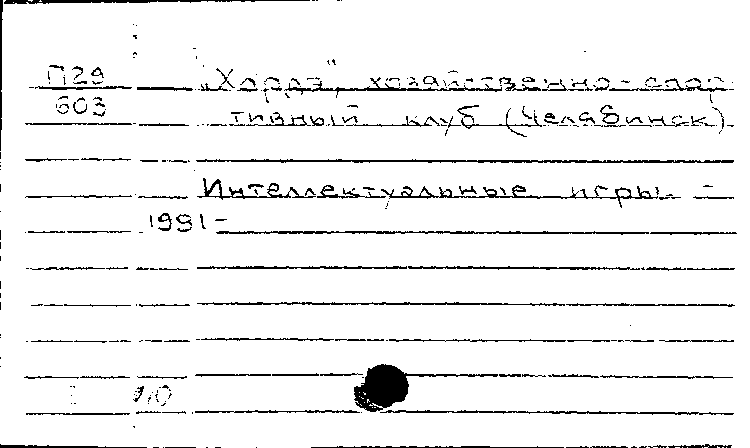 П29
603
„Хордэ", хозяйственно-спор
тивный клуб (Челябинск)
Интеллектуальные игры. -
1991-